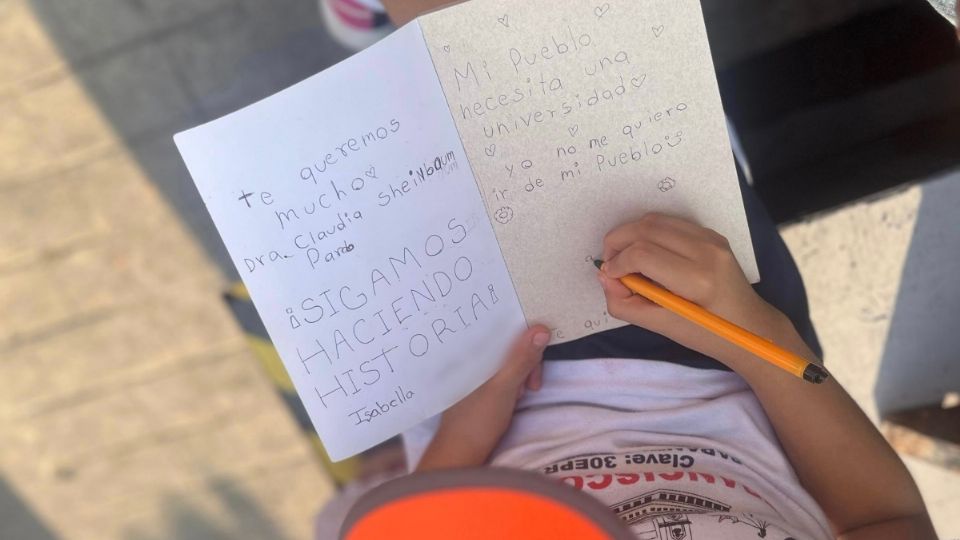 te queremos
mucho
Dra. Claudia Sheinbaum
Pardo
¡SIGAMOS
HACIENDO
HISTORIA¡
Isabella
Mi Pueblo
necesita una
universidad
yo no me quiero
ir de mi Pueblo
Te qui
Clave: 30EPR